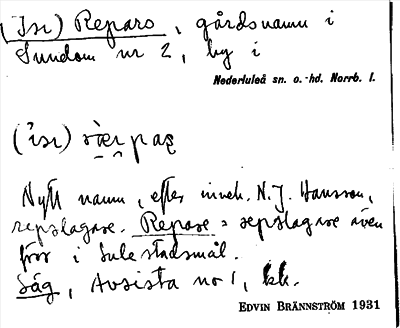 (Isr) Repars, gårdsnamn i
Sundom nr 2, by i
Nederluleå sn. o. hd. Norrb. l.
Nytt namn, efter inneh. N. J. Hansson,
repslagare. Repare = repslagare även
förr i Lule stadsmål.
Säg, Avsista no 1, kk.
EDVIN BRÄNNSTRÖM 1931